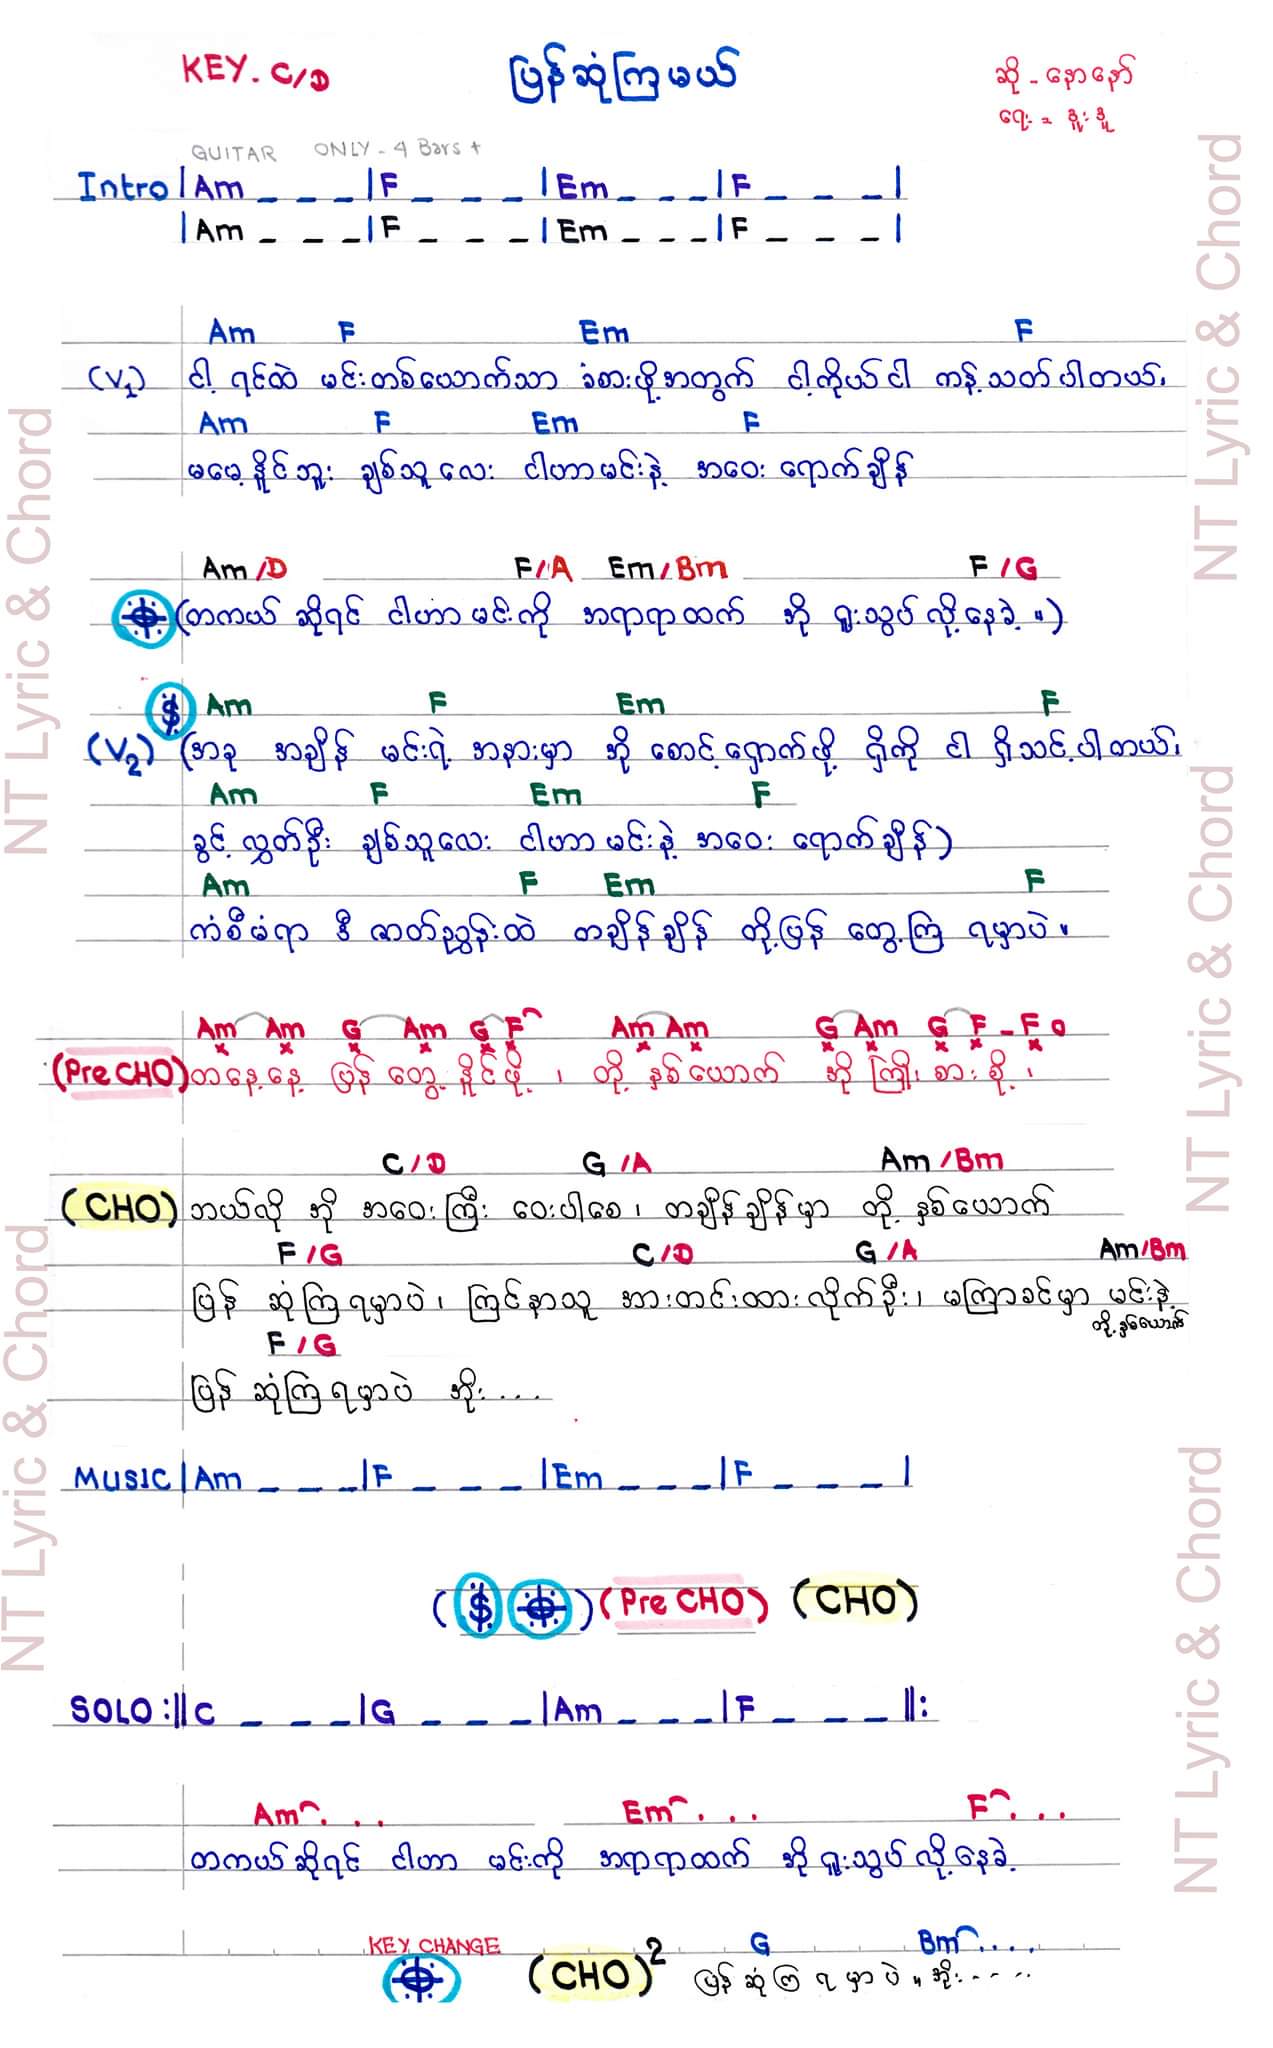 KEY. C/D
ပြန်ဆုံကြမယ်
ဆို - နောနော်
ရေး =
GUITAR ONLY - 4 Bars +
Intro |Am _ _ _ |F _ _ _ |Em _ _ _ |F _ _ _ |
|Am _ _ _ |F _ _ _ |Em _ _ _ |F _ _ _ |
Am F Em F
(V1) ငါ့ ရင်ထဲ မင်းတစ်ယောက်သာ ခံစားဖို့အတွက် ငါ့ကိုယ်ငါ ကန့်သတ်ပါတယ်၊
Am F Em F
မမေ့နိုင်ဘူး ချစ်သူလေး ငါဟာမင်းနဲ့ အဝေး ရောက်ချိန်
Am/D F/A Em/Bm F/G
(တကယ် ဆိုရင် ငါဟာ မင်းကို အရာရာထက် ဘို ရူးသွပ်လို့နေခဲ့ ။)
$ Am F Em F
(V2) (အခု အချိန် မင်းရဲ့ အနားမှာ ဘို စောင့်ရှောက်ဖို့ ရှိကို ငါ ရှိသင့်ပါတယ်၊
Am F Em F
ခွင့်လွှတ်ဦး ချစ်သူလေး ငါဟာမင်းနဲ့ အဝေး ရောက်ချိန်)
Am F Em F
ကံစီမံရာ ဒီ ဇာတ်ညွှန်းထဲ တချိန်ချိန် တို့ပြန် တွေ့ကြ ရမှာပဲ ။
Am Am G Am G F Am Am G Am G F - F o
(Pre CHO) တနေ့နေ့ ပြန် တွေ့နိုင်ဖို့ ၊ တို့ နှစ်ယောက် ဘို ကြိုးစားစို့ ၊
C/D G/A Am/Bm
(CHO) ဘယ်လို ဘို အဝေးကြီး ဝေးပါစေ ၊ တချိန်ချိန်မှာ တို့ နှစ်ယောက်
F/G C/D G/A Am/Bm
ပြန် ဆုံကြရမှာပဲ ၊ ကြင်နာသူ အားတင်းထားလိုက်ဦး ၊ မကြာခင်မှာ မင်းနဲ့
တို့နှစ်ယောက်
F/G
ပြန် ဆုံကြရမှာပဲ ဘိုး....
MUSIC |Am _ _ _ |F _ _ _ |Em _ _ _ |F _ _ _ |
($ ) (Pre CHO) (CHO)
SOLO :||C _ _ _ |G _ _ _ |Am _ _ _ |F _ _ _ ||:
Am... Em... F...
တကယ်ဆိုရင် ငါဟာ မင်းကို အရာရာထက် ဘို ရူးသွပ်လို့နေခဲ့
KEY CHANGE G Bm....
(CHO)2 ပြန် ဆုံကြ ရမှာပဲ ။ ဘိုး....
NT Lyric & Chord
NT Lyric & Chord
NT Lyric & Chord
NT Lyric & Chord
NT Lyric & Chord